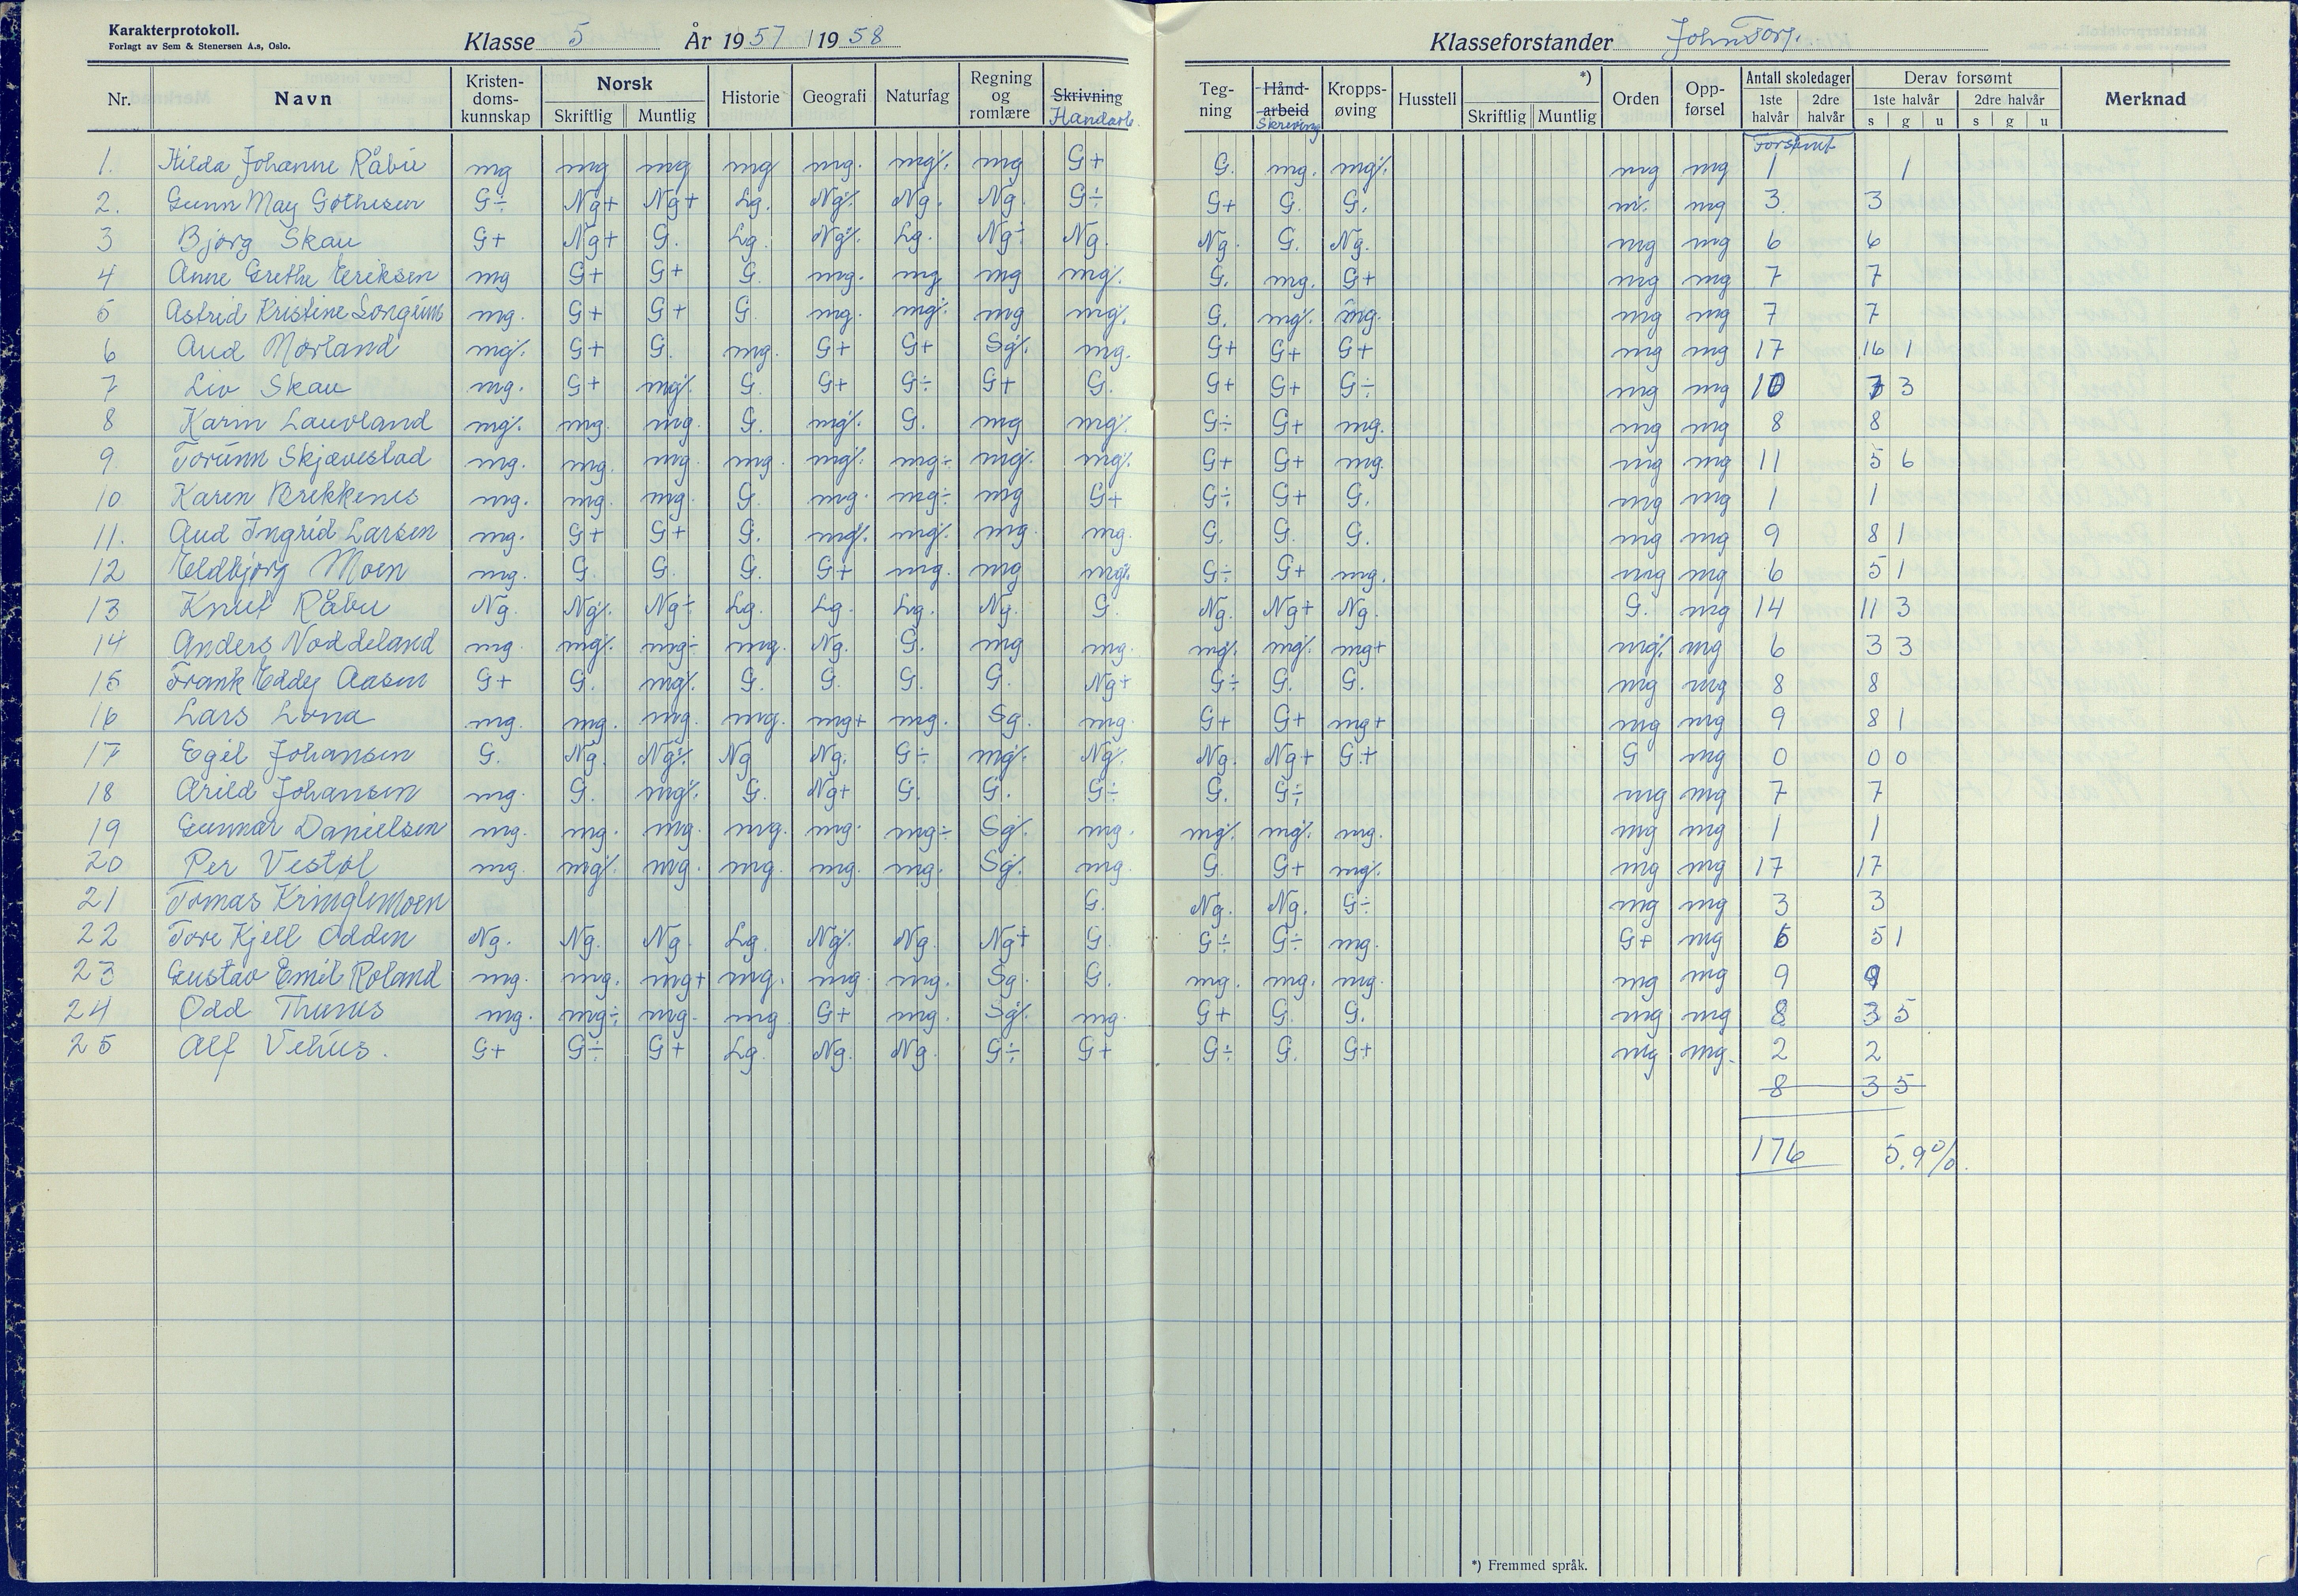 Karakterprotokoll.
Forlagt av Sem & Stenersen A.s, Oslo.
Klasse 5 År 1957 / 1958 Klasseforstander John Torg.
Nr. Navn Kristendomskunnskap Norsk Skriftlig Muntlig Historie Geografi Naturfag Regning og romlære Skrivning Handarb. Tegning Håndarbeid Skriving Kroppsøving Husstell *) Skriftlig Muntlig Orden Oppførsel Antall skoledager 1ste halvår 2dre halvår Derav forsømt 1ste halvår s g u 2dre halvår s g u Merknad
Forsømt
1. Hilda Johanne Råbu mg mg mg mg mg. mg÷ mg G+ G. mg. mg÷ mg mg 1 1
2. Gunn May Gothesen G÷ Ng+ Ng+ Lg. Ng÷ Ng. Ng. G÷ G+ G. G. mg 3 3
3 Bjørg Skau G+ Ng+ G. Lg. Ng÷ Lg. Ng÷ Ng. Ng. G. Ng. mg mg 6 6
4 Anne Grethe Eriksen mg G+ G+ G. mg. mg mg mg÷ G. mg. G+ mg mg 7 7
5 Astrid Kristine mg. G+ G+ G. mg. mg÷ mg mg÷ G. mg÷ mg. mg mg 7 7
6 Aud Mørland mg÷ G+ G. mg. G+ G+ Sg÷ mg. G+ G+ G+ mg mg 17 16 1
7 Liv Skau mg. G+ mg÷ G. G+ G÷ G+ G. G+ G+ G÷ mg mg 10 7 3
8 Karin Lauvland mg÷ mg. mg. G. mg÷ G. mg mg÷ G÷ G+ mg. mg mg 8 8
9 Torunn Skjævestad mg. mg. mg. mg. mg÷ mg÷ mg÷ mg÷ G+ G+ mg. mg mg 11 5 6
10 Karen Brekkenes mg. mg. mg. G. mg. mg÷ mg G+ G÷ G+ G. mg mg 1 1
11. Aud Ingrid Larsen mg. G+ G+ G. mg÷ mg÷ mg. mg. G. G. G. mg mg 9 8 1
12 Eldbjørg Moen mg. G. G. G. G+ mg. mg mg÷ G÷ G+ mg. mg mg 6 5 1
13 Knut Råbu Ng. Ng÷ Ng÷ Lg. Lg. Lg. Ng. G. Ng. Ng+ Ng. G. mg 14 11 3
14 Anders Noddeland mg. mg÷ mg÷ mg. Ng. G. mg mg. mg÷ mg÷ mg+ mg÷ mg 6 3 3
15 Frank Eddy Aasen G+ G. mg÷ G. G. G. G. Ng+ G÷ G. G. mg mg 8 8
16 Lars Lona mg. mg. mg. mg. mg+ mg. Sg. mg. G+ G+ mg+ mg mg 9 8 1
17 Egil Johansen G. Ng. Ng÷ Ng Ng. G÷ mg÷ Ng÷ Ng. Ng+ G+ G mg 0 0 0
18 Arild Johansen mg. G. mg÷ G. Ng+ G. G. G÷ G. G÷ mg mg 7 7
19 Gunnar Danielsen mg. mg. mg. mg. mg. mg÷ Sg÷ mg. mg÷ mg÷ mg. mg mg 1 1
20 Per Vestøl mg. mg÷ mg. mg. mg. mg. Sg÷ mg. G. G+ mg÷ mg mg 17 17
21 Tomas Kringlemoen G. Ng. Ng. G÷ mg mg 3 3
22 Tore Kjell Odden Ng. Ng. Ng. Lg. Ng÷ Ng. Ng+ G. G÷ G÷ mg. G+ mg 6 5 1
23 Gustav Emil Roland mg. mg. mg+ mg. mg. mg. Sg. G. mg. mg. mg. mg mg 9 9
24 Odd mg. mg÷ mg. mg G+ mg. Sg÷ mg. G+ G. G. mg mg 8 3 5
25 Alf Vehus. G+ G÷ G+ Lg. Ng. Ng. G÷ G+ G÷ G. G+ mg mg. 2 2
8 3 5
176 5,9%.
*) Fremmed språk.